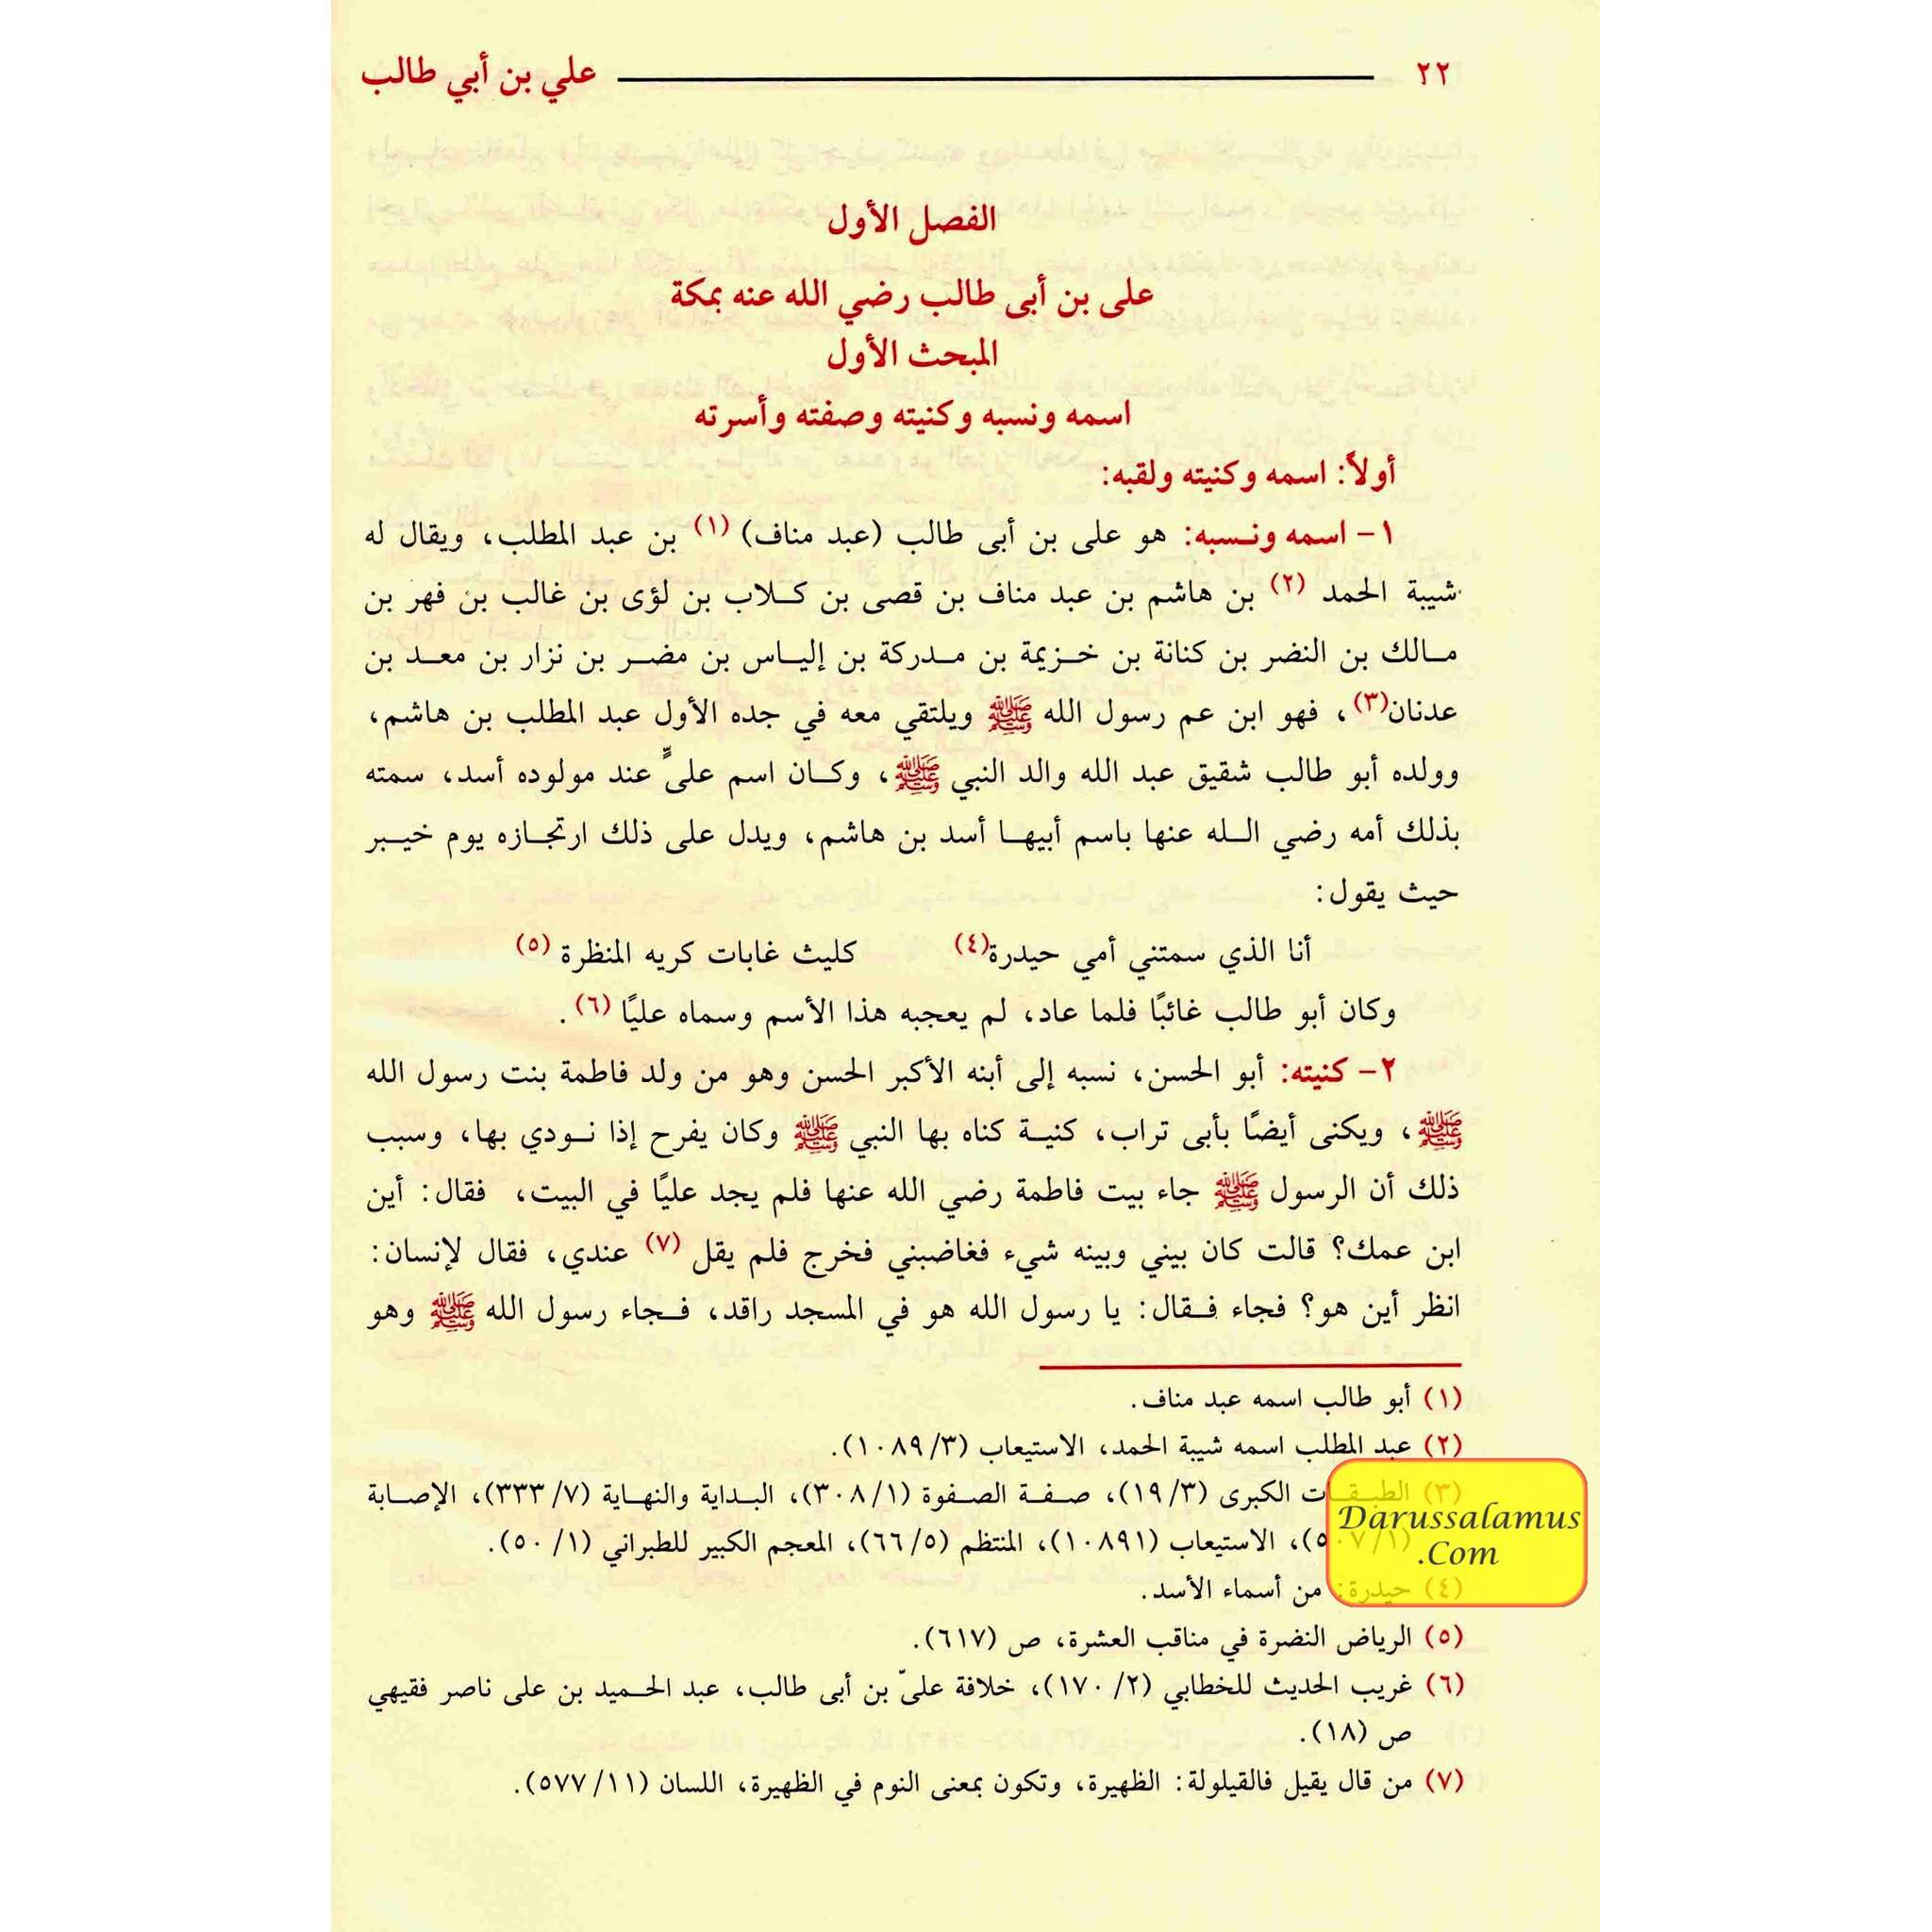 ٢٢ علي بن أبي طالب
الفصل الأول
على بن أبى طالب رضي الله عنه بمكة
المبحث الأول
اسمه ونسبه وكنيته وصفته وأسرته
أولاً: اسمه وكنيته ولقبه:
١- اسمه ونسبه: هو على بن أبى طالب (عبد مناف) (١) بن عبد المطلب، ويقال له
شيبة الحمد (٢) بن هاشم بن عبد مناف بن قصى بن كلاب بن لؤى بن غالب بن فهر بن
مالك بن النضر بن كنانة بن خزيمة بن مدركة بن إلياس بن مضر بن نزار بن معد بن
عدنان(٣)، فهو ابن عم رسول الله ﷺ ويلتقي معه في جده الأول عبد المطلب بن هاشم،
وولده أبو طالب شقيق عبد الله والد النبي ﷺ، وكان اسم علىٍّ عند مولوده أسد، سمته
بذلك أمه رضي الله عنها باسم أبيها أسد بن هاشم، ويدل على ذلك ارتجازه يوم خيبر
حيث يقول:
أنا الذي سمتني أمي حيدرة(٤) كليث غابات كريه المنظرة (٥)
وكان أبو طالب غائبًا فلما عاد، لم يعجبه هذا الأسم وسماه عليًا (٦).
٢- كنيته: أبو الحسن، نسبه إلى أبنه الأكبر الحسن وهو من ولد فاطمة بنت رسول الله
ﷺ، ويكنى أيضًا بأبى تراب، كنية كناه بها النبي ﷺ وكان يفرح إذا نودي بها، وسبب
ذلك أن الرسول ﷺ جاء بيت فاطمة رضي الله عنها فلم يجد عليًا في البيت، فقال: أين
ابن عمك؟ قالت كان بيني وبينه شيء فغاضبني فخرج فلم يقل (٧) عندي، فقال لإنسان:
انظر أين هو؟ فجاء فقال: يا رسول الله هو في المسجد راقد، فجاء رسول الله ﷺ وهو
(١) أبو طالب اسمه عبد مناف.
(٢) عبد المطلب اسمه شيبة الحمد، الاستيعاب (٣/١٠٨٩).
(٣) الطبقات الكبرى (٣/١٩)، صفة الصفوة (١/٣٠٨)، البداية والنهاية (٧/٣٣٣)، الإصابة
(١/٥٠٧)، الاستيعاب (١٠٨٩١)، المنتظم (٥/٦٦)، المعجم الكبير للطبراني (١/٥٠).
(٤) حيدرة: من أسماء الأسد.
(٥) الرياض النضرة في مناقب العشرة، ص (٦١٧).
(٦) غريب الحديث للخطابي (٢/١٧٠)، خلافة علىّ بن أبى طالب، عبد الحميد بن على ناصر فقيهي
ص (١٨).
(٧) من قال يقيل فالقيلولة: الظهيرة، وتكون بمعنى النوم في الظهيرة، اللسان (١١/٥٧٧).
Darussalamus
.Com